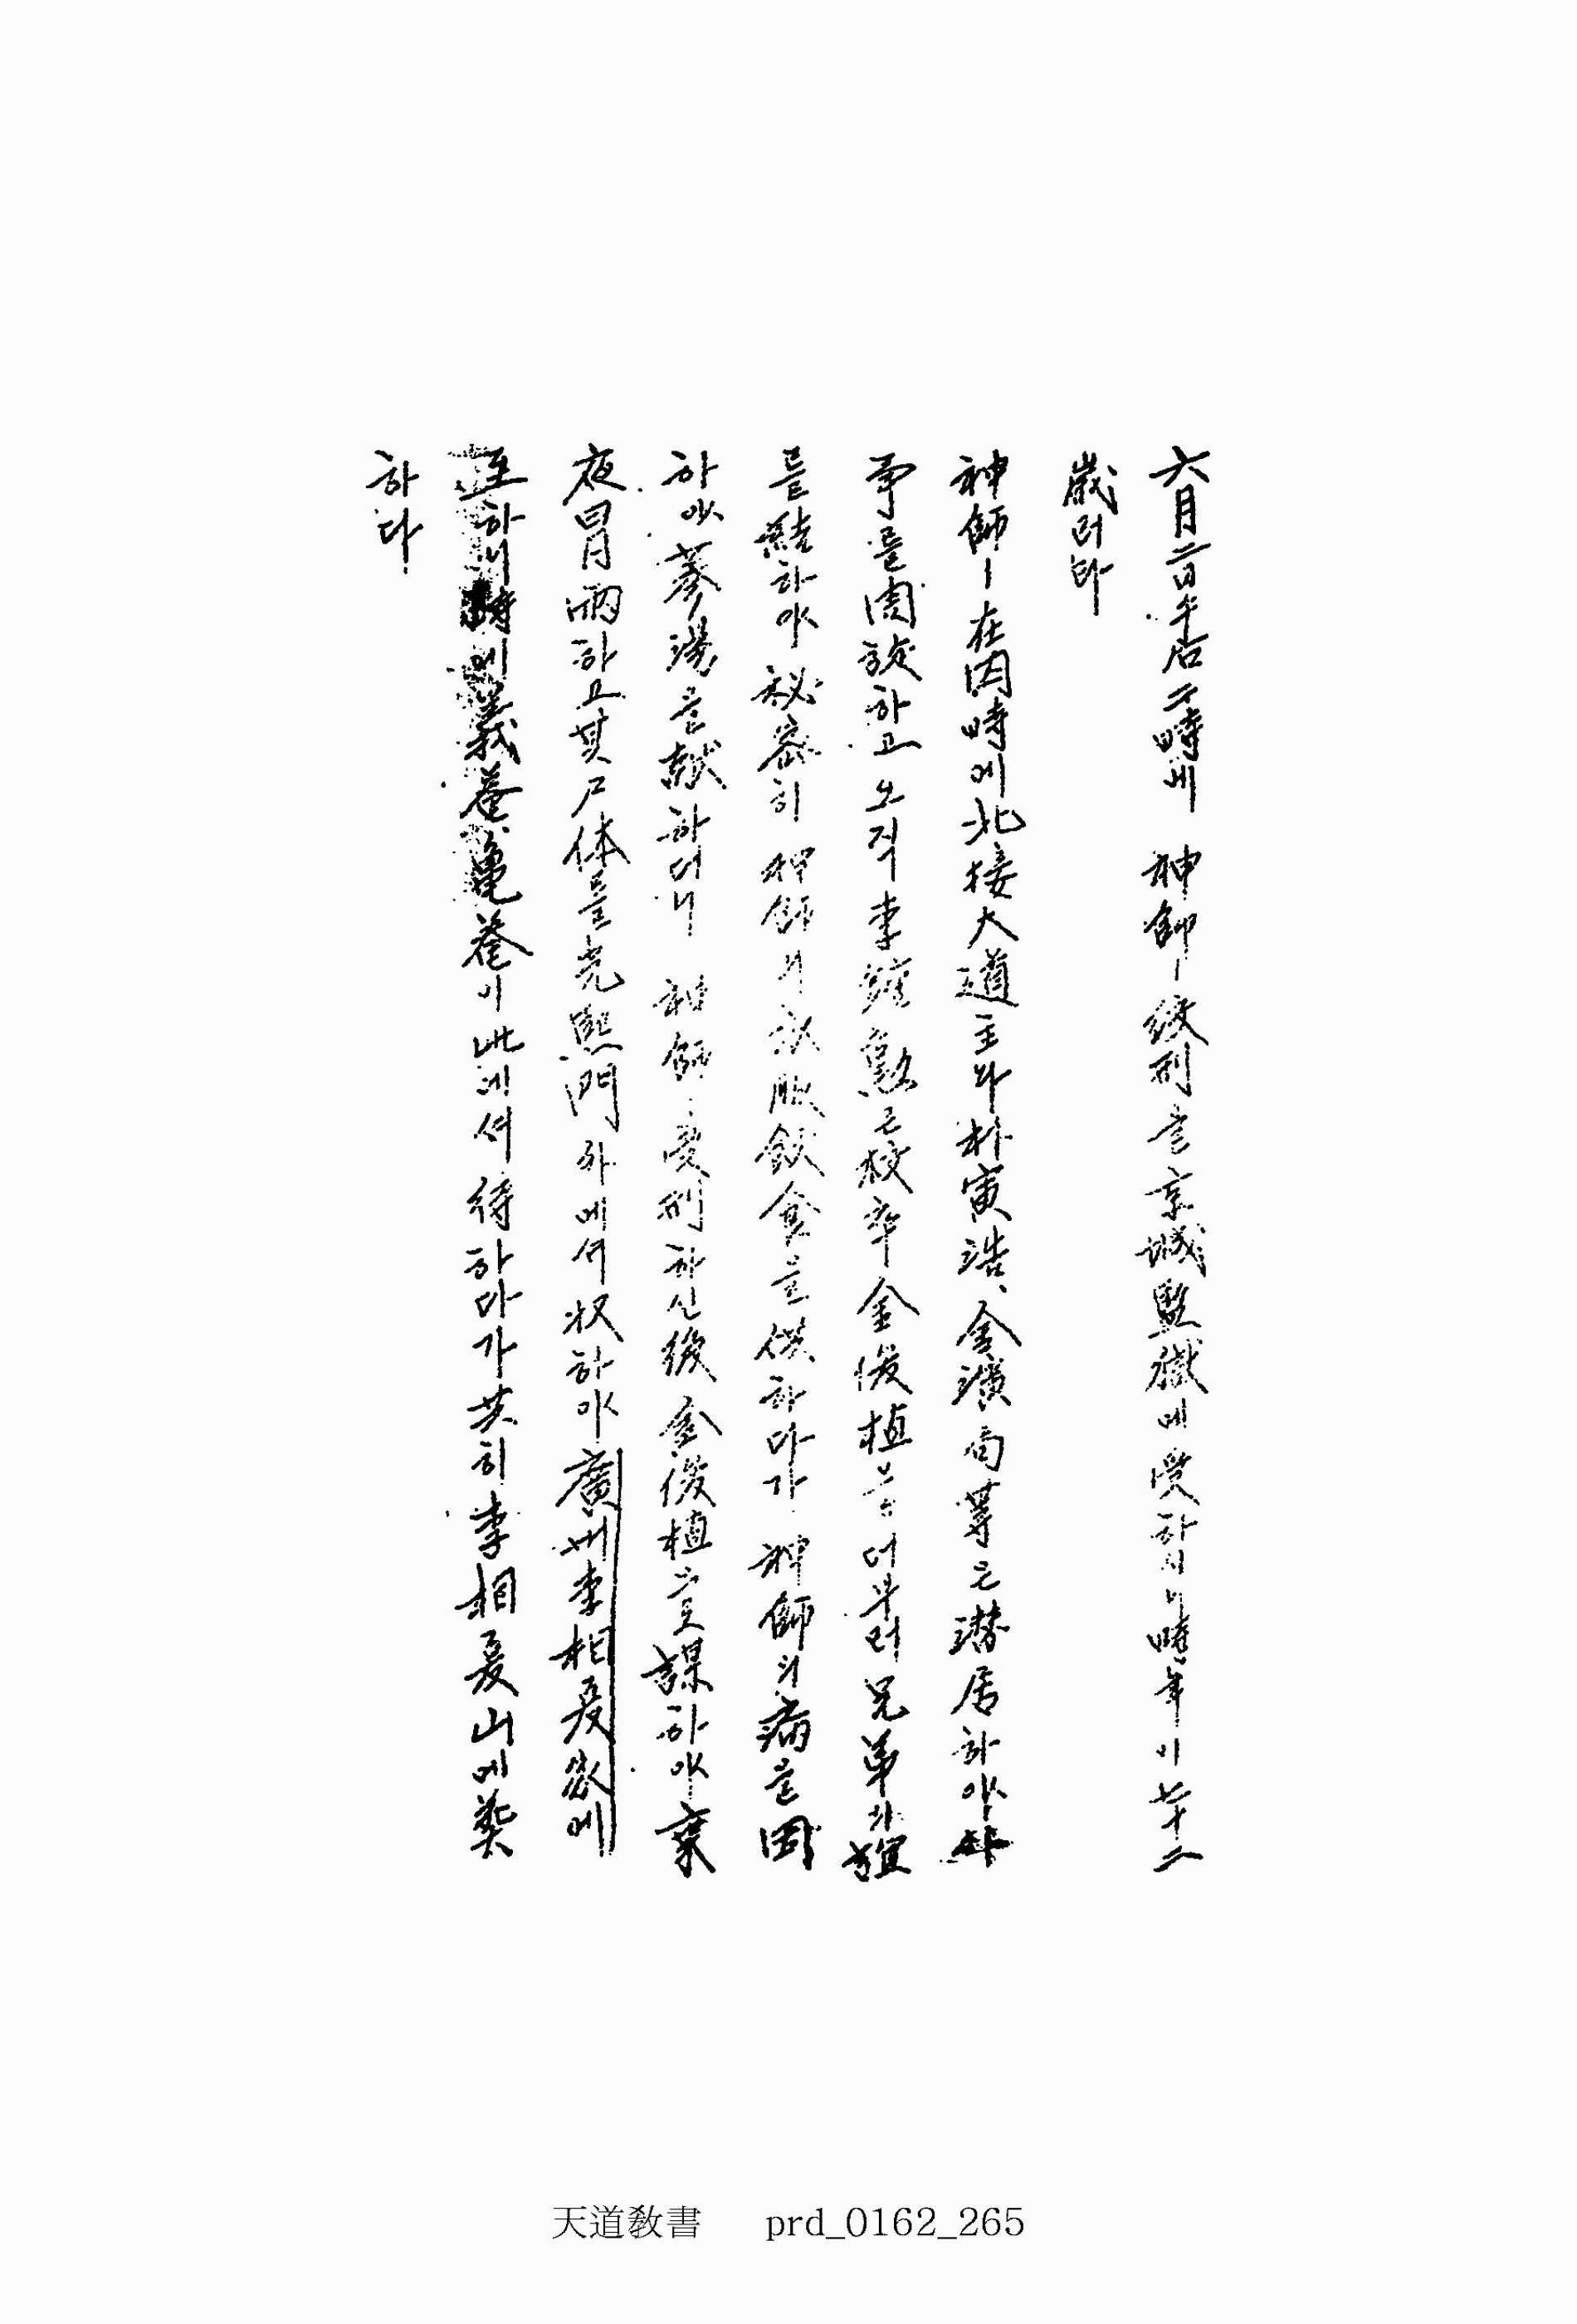 六月二日午后二時에 神師ㅣ 絞刑을 京城監獄에 受하시니 時年이 七十二
歲러라
神師ㅣ 在囚時에 北接大道主와 朴寅浩、金演局 等은 潜居하야 外
事를 周旋하고 오직 李鍾勳은 校卒 金俊植으로 더부러 兄弟의 誼
를 結하야 秘密히 神師의 衣服飮食을 供하다가 神師의 病을 因
하야 蔘湯을 献하더니 神師 受刑하신 後 金俊植으로 謀하야 乘
夜冒雨하고 其尸体를 光熙門 外에서 收하야 廣州李相夏家에
至하니 時에 義菴 龜菴이 此에셔 待하다가 共히 李相夏山에 葬
하다
天道敎書 prd_0162_265